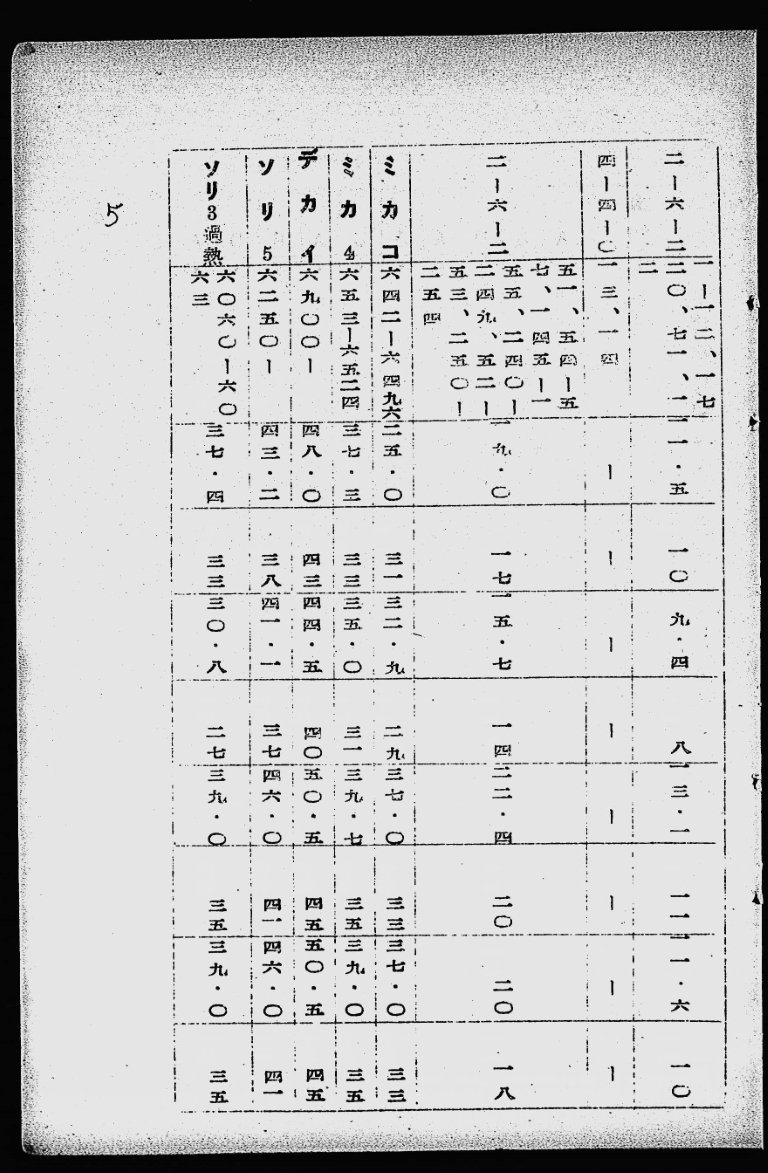 二ー六ー二
一ー一二、一七
二〇、七一、一
二
一一・五
一〇
九・四
八
一三・一
一一
一一・六
一〇
四ー四ー〇
一三、一四
ー
ー
ー
ー
ー
ー
ー
ー
二ー六ー二
五一、五四ー五
七、一四五ー一
五五、二四〇ー
二四九、五二ー
五三、二五〇ー
二五四
一九・〇
一七
一五・七
一四
二二・四
二〇
二〇
一八
ミカコ
六四二ー六四九六
二五・〇
三一
三二・九
二九
三七・〇
三三
三七・〇
三三
ミカ4
六五三ー六五二四
三七・三
三三
三五・〇
三一
三九・七
三五
三九・〇
三五
デカイ
六九〇〇ー
四八・〇
四三
四四・五
四〇
五〇・五
四五
五〇・五
四五
ソリ5
六二五〇ー
四三・二
三八
四一・一
三七
四六・〇
四一
四六・〇
四一
ソリ3過熱
六〇六〇ー六〇
六三
三七・四
三三
三〇・八
二七
三九・〇
三五
三九・〇
三五
5